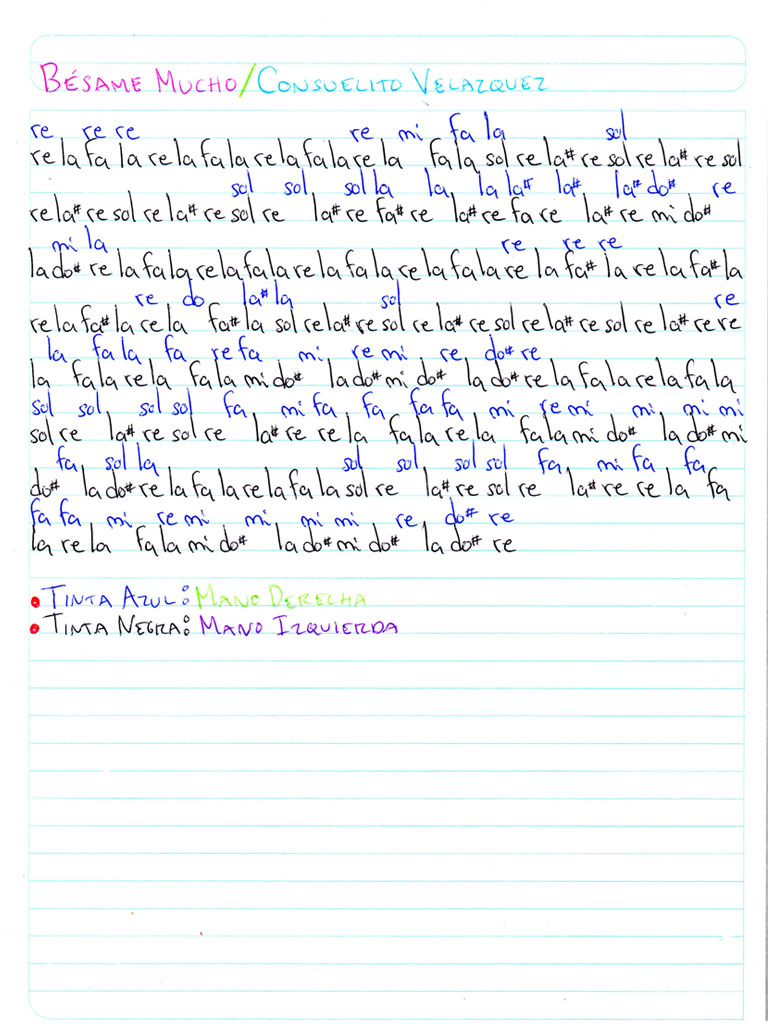 BÉSAME MUCHO/CONSUELITO VELAZQUEZ
re, re re re, mi fa la sol
re la fa la re la fa la re la fa la re la fa la sol re la# re sol re la# re sol
sol sol, sol la la, la la# la#, la# do#, re
re la# re sol re la# re sol re la# re fa# re la# re fa re la# re mi do#
mi la re re re
la do# re la fa la re la fa la re la fa la re la fa la re la fa# la re la fa# la
re, do la# la sol re
re la fa# la re la fa# la sol re la# re sol re la# re sol re la# re sol re la# re re
la fa la, fa re fa mi, re mi re, do# re
la fa la re la fa la mi do# la do# mi do# la do# re la fa la re la fa la
sol sol, sol sol fa, mi fa, fa fa fa, mi re mi mi, mi mi
sol re la# re sol re la# re re la fa la re la fa la mi do# la do# mi
fa, sol la sol sol, sol sol fa, mi fa, fa
do# la do# re la fa la re la fa la sol re la# re sol re la# re re la fa
fa fa, mi re mi mi, mi mi re, do# re
la re la fa la mi do# la do# mi do# la do# re
• TINTA AZUL: MANO DERECHA
• TINTA NEGRA: MANO IZQUIERDA